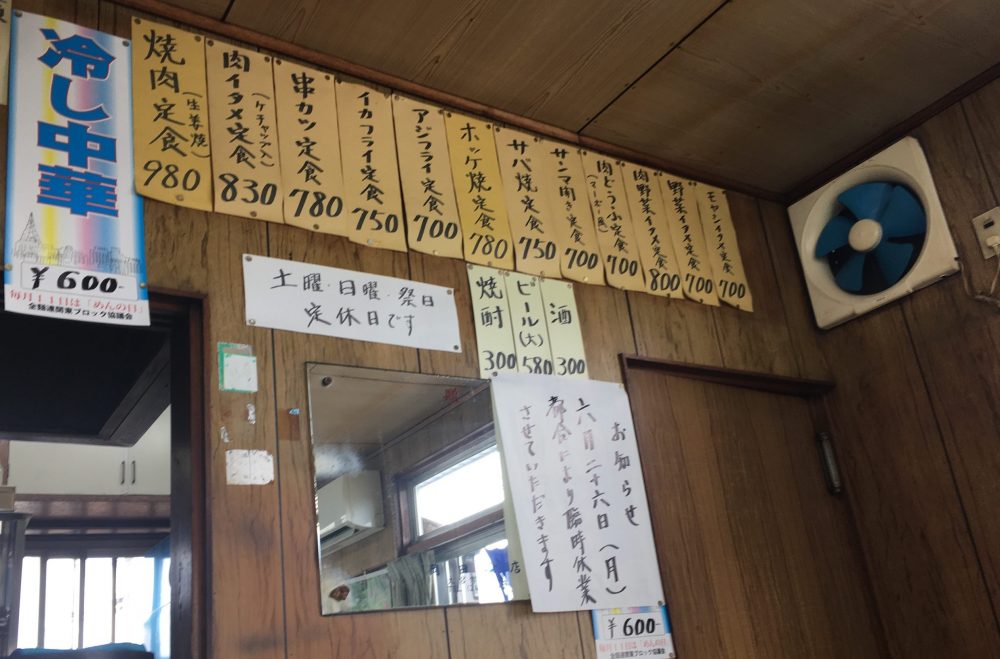 冷し中華
¥600-
毎月11日は「めんの日」
全麺連関東ブロック協議会
焼肉定食
(生姜焼)
980
肉イタメ定食
(ケチャップ入)
830
串カツ定食
780
イカフライ定食
750
アジフライ定食
700
ホッケ焼定食
780
サバ焼定食
750
サンマ開き定食
700
肉どうふ定食
700
肉野菜イタメ定食
800
野菜イタメ定食
700
モヤシイタメ定食
700
土曜・日曜・祭日
定休日です
焼酎
300
ビール(大)
580
酒
300
お知らせ
六月二十六日(月)
都合により臨時休業
させていただきます
店
¥600-
毎月11日は「めんの日」
全麺連関東ブロック協議会